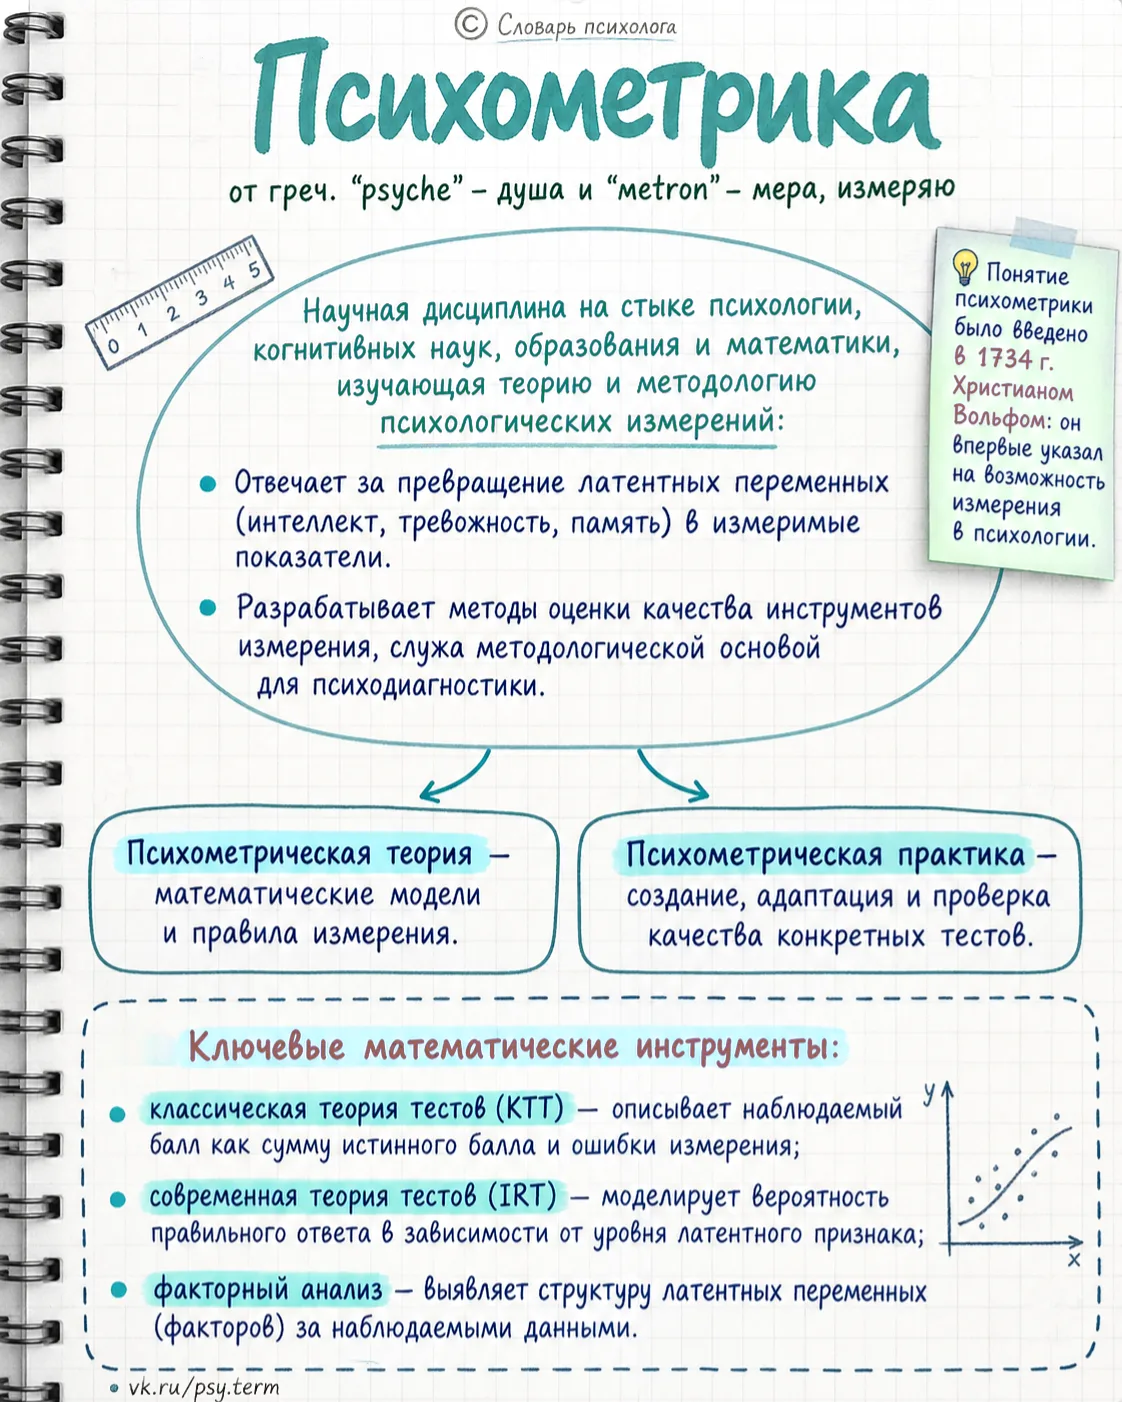 © Словарь психолога
Психометрика
от греч. “psyche” – душа и “metron” – мера, измеряю
0 1 2 3 4 5
Научная дисциплина на стыке психологии,
когнитивных наук, образования и математики,
изучающая теорию и методологию
психологических измерений:
• Отвечает за превращение латентных переменных
(интеллект, тревожность, память) в измеримые
показатели.
• Разрабатывает методы оценки качества инструментов
измерения, служа методологической основой
для психодиагностики.
Понятие
психометрики
было введено
в 1734 г.
Христианом
Вольфом: он
впервые указал
на возможность
измерения
в психологии.
Психометрическая теория –
математические модели
и правила измерения.
Психометрическая практика –
создание, адаптация и проверка
качества конкретных тестов.
Ключевые математические инструменты:
• классическая теория тестов (КТТ) – описывает наблюдаемый
балл как сумму истинного балла и ошибки измерения;
• современная теория тестов (IRT) – моделирует вероятность
правильного ответа в зависимости от уровня латентного признака;
• факторный анализ – выявляет структуру латентных переменных
(факторов) за наблюдаемыми данными.
y
x
• vk.ru/psy.term